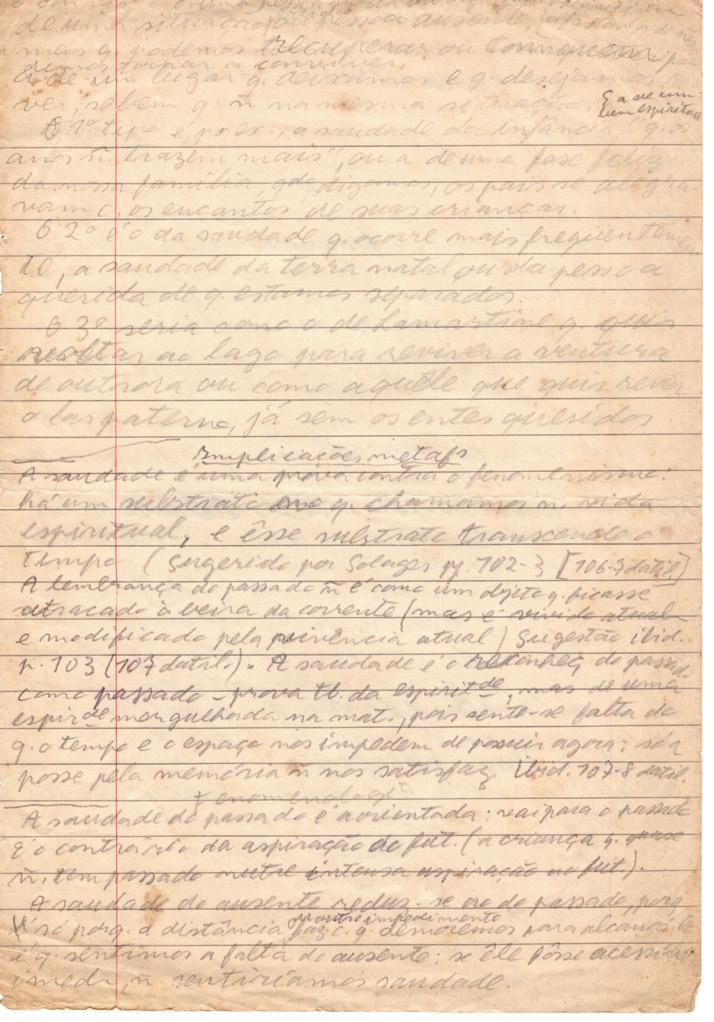 de uma situação, de pessoa ausente,
mas q. podemos recuperar ou
demos tornar a conviver,
a de um lugar q. deixamos e q. desejamos
ver, se bem q. ñ na mesma situação,
O 1º tipo é, p. ex., a saudade da infância "q. os
anos ñ trazem mais", ou a de uma fase feliz
da nossa família, qdo, digamos, os pais se alegra-
vam c. os encantos de suas crianças.
O 2º é o da saudade q. ocorre mais frequentemen-
te, a saudade da terra natal ou da pessoa
querida de q. estamos separados.
O 3º seria como o de Lamartine q. quis
voltar ao lago para reviver a ventura
de outrora ou como aquêle que quis rever
o lar paterno, já sem os entes queridos.
Implicações metafs
A saudade é uma prova contra o fenomenismo:
há um substrato q. chamamos n. vida
espiritual, e êsse substrato transcende o
tempo (Sugerido por Solages pp. 102-3 [106-7 datil]
A lembrança do passado ñ é como um objeto q. ficasse
atracado à beira da corrente (mas é vivido atual
e modificado pela vivência atual) Sugestão ibid.
p. 103 (107 datil.). A saudade é o reconheç. do passado
como passado – prova tb. da espiritde, mas de uma
espirde mergulhada na mat., pois sente-se falta do
q. o tempo e o espaço nos impedem de possuir agora; só a
posse pela memória ñ nos satisfaz. Ibid. 107-8 datil.
Fenomenologia
A saudade do passado é orientada: vai para o passado
É o contrário da aspiração do fut. (a criança q. quase
ñ tem passado nutre intensa aspiração no fut).
A saudade do ausente reduz-se ao do passado, porq.
é só porq. a distância ou outro impedimento faz c. q. demoremos para alcançá-lo
é q. sentimos a falta do ausente: se êle fôsse acessível
imed., ñ sentiríamos saudade.